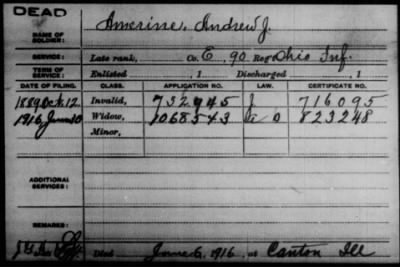 DEAD
NAME OF SOLDIER: Amerine, Andrew J.
SERVICE: Late rank, Co. E, 90 Reg't Ohio Inf.
TERM OF SERVICE: Enlisted , 1 Discharged , 1
DATE OF FILING. CLASS. APPLICATION NO. LAW. CERTIFICATE NO.
1889 Oct. 12 Invalid, 732945 J 716095
1916 June 30 Widow, 1068543 823248
Minor,
ADDITIONAL SERVICES:
REMARKS:
Died June 6, 1916, at Canton Ill